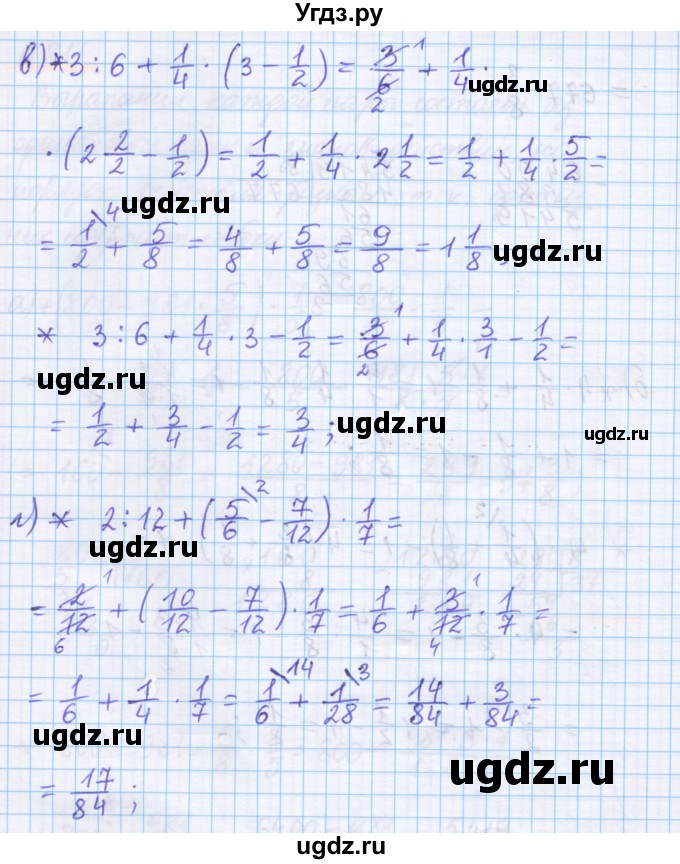 Угдз.ру
в) * 3 : 6 + 1/4 · (3 - 1/2) = 3/6 1 2 + 1/4 ·
ugdz.ru
· (2 2/2 - 1/2) = 1/2 + 1/4 · 2 1/2 = 1/2 + 1/4 · 5/2 =
ugdz.ru
= 1/2 \4 + 5/8 = 4/8 + 5/8 = 9/8 = 1 1/8;
ugdz.ru
* 3 : 6 + 1/4 · 3 - 1/2 = 3/6 1 2 + 1/4 · 3/1 - 1/2 =
ugdz.ru
= 1/2 + 3/4 - 1/2 = 3/4;
ugdz.ru
ugdz.ru
г) * 2 : 12 + (5/6 \2 - 7/12) · 1/7 =
ugdz.ru
= 2/12 1 6 + (10/12 - 7/12) · 1/7 = 1/6 + 3/12 1 4 · 1/7 =
= 1/6 + 1/4 · 1/7 = 1/6 \14 + 1/28 \3 = 14/84 + 3/84 =
ugdz.ru
ugdz.ru
= 17/84;
ugdz.ru